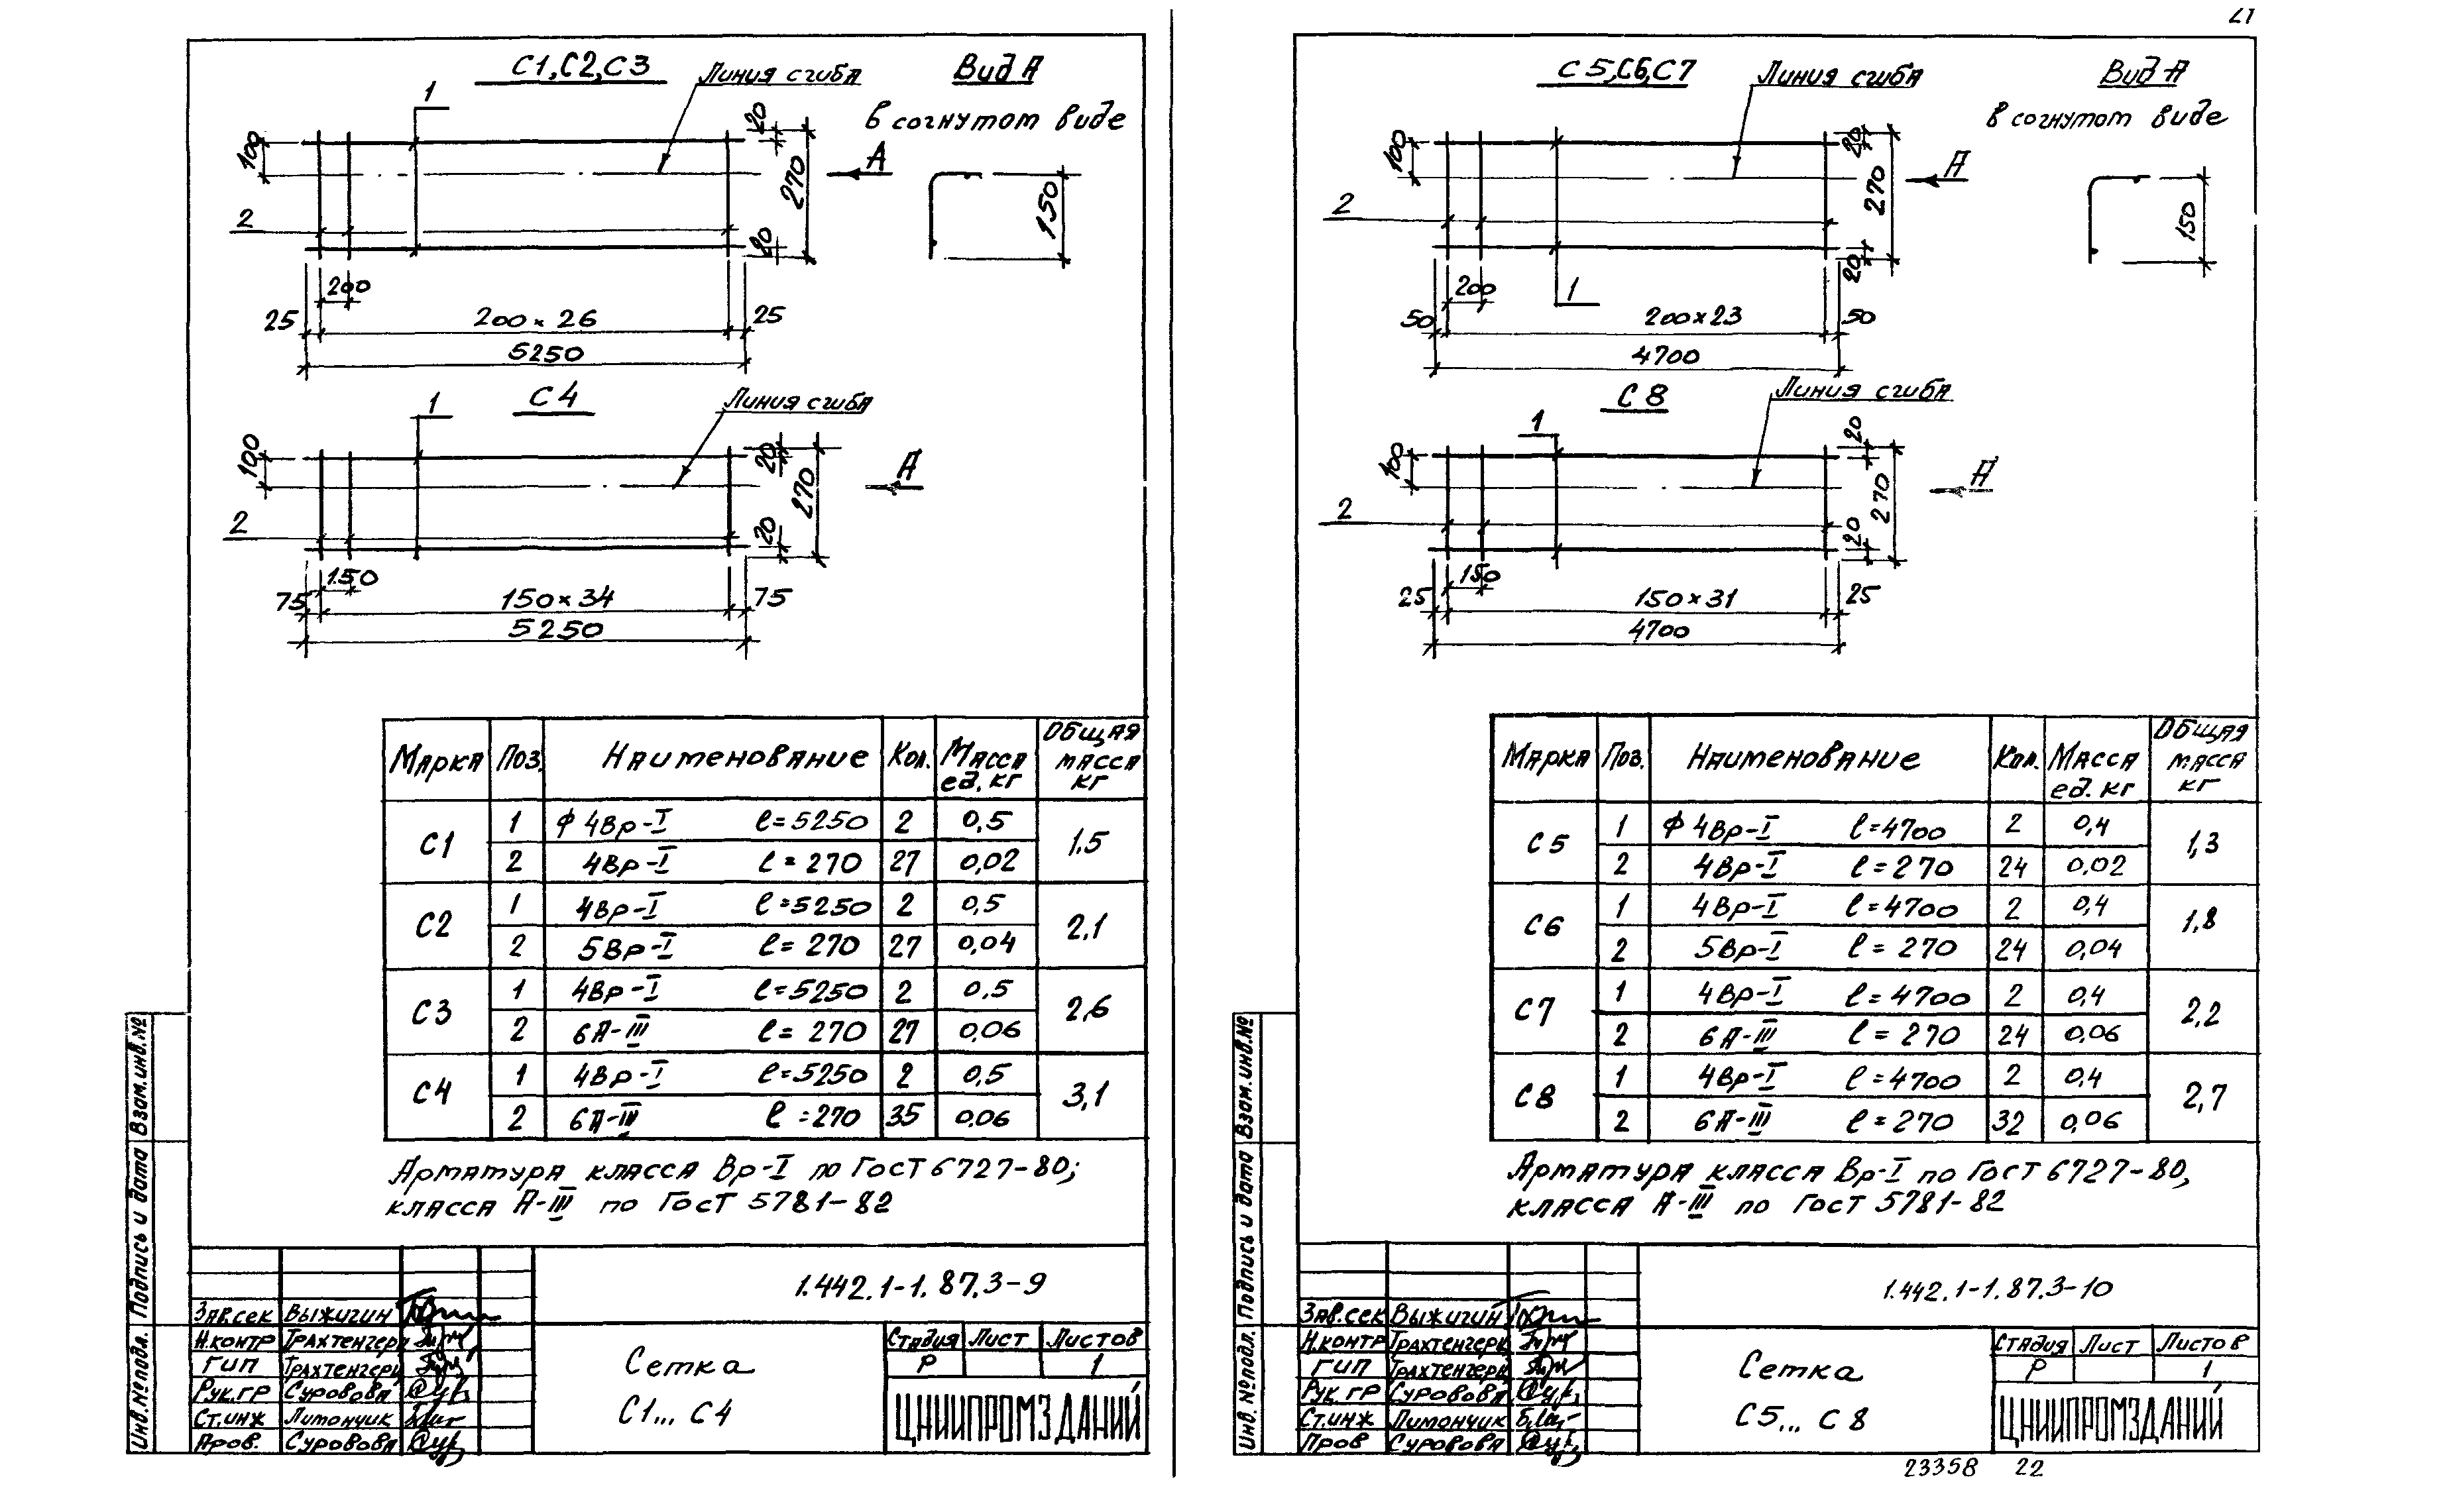 21
С1,С2,С3
Линия сгиба
Вид А
в согнутом виде
1
2
100
20
270
20
А
150
200
25
200×26
25
5250
С4
Линия сгиба
1
2
100
20
270
20
А
150
75
150×34
75
5250
Марка Поз. Наименование Кол. Масса ед. кг Общая масса кг
С1 1 ф 4Вр-I ℓ=5250 2 0,5 1,5
2 4Вр-I ℓ=270 27 0,02
С2 1 4Вр-I ℓ=5250 2 0,5 2,1
2 5Вр-I ℓ=270 27 0,04
С3 1 4Вр-I ℓ=5250 2 0,5 2,6
2 6А-III ℓ=270 27 0,06
С4 1 4Вр-I ℓ=5250 2 0,5 3,1
2 6А-III ℓ=270 35 0,06
Арматура класса Вр-I по ГОСТ 6727-80;
класса А-III по ГОСТ 5781-82
Инв.№подл. Подпись и дата Взам.инв.№
1.442.1-1.87.3-9
Зав.сек Выжигин
Н.контр Трахтенгерц
ГИП Трахтенгерц
Рук.гр Суровова
Ст.инж Литончик
Пров. Суровова
Сетка
С1... С4
Стадия Лист Листов
Р 1
ЦНИИПРОМЗДАНИЙ
С5,С6,С7
Линия сгиба
Вид А
в согнутом виде
2
1
100
20
270
20
А
150
200
50
200×23
50
4700
С8
Линия сгиба
1
2
100
20
270
20
А
150
25
150×31
25
4700
Марка Поз. Наименование Кол. Масса ед. кг Общая масса кг
С5 1 ф 4Вр-I ℓ=4700 2 0,4 1,3
2 4Вр-I ℓ=270 24 0,02
С6 1 4Вр-I ℓ=4700 2 0,4 1,8
2 5Вр-I ℓ=270 24 0,04
С7 1 4Вр-I ℓ=4700 2 0,4 2,2
2 6А-III ℓ=270 24 0,06
С8 1 4Вр-I ℓ=4700 2 0,4 2,7
2 6А-III ℓ=270 32 0,06
Арматура класса Вр-I по ГОСТ 6727-80,
класса А-III по ГОСТ 5781-82
Инв.№подл. Подпись и дата Взам.инв.№
1.442.1-1.87.3-10
Зав.сек Выжигин
Н.контр Трахтенгерц
ГИП Трахтенгерц
Рук.гр Суровова
Ст.инж Литончик
Пров Суровова
Сетка
С5... С8
Стадия Лист Листов
Р 1
ЦНИИПРОМЗДАНИЙ
23358 22